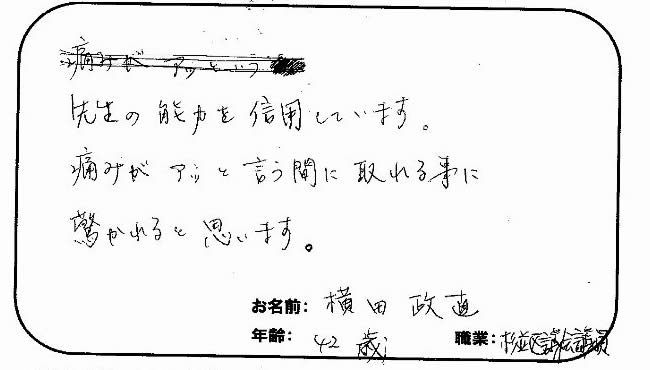 痛みが アッという
先生の能力を信用しています。
痛みが アッと言う間に取れる事に
驚かれると思います。
お名前: 横田 政直
年齢: 42 歳
職業: 杉並区議会議員